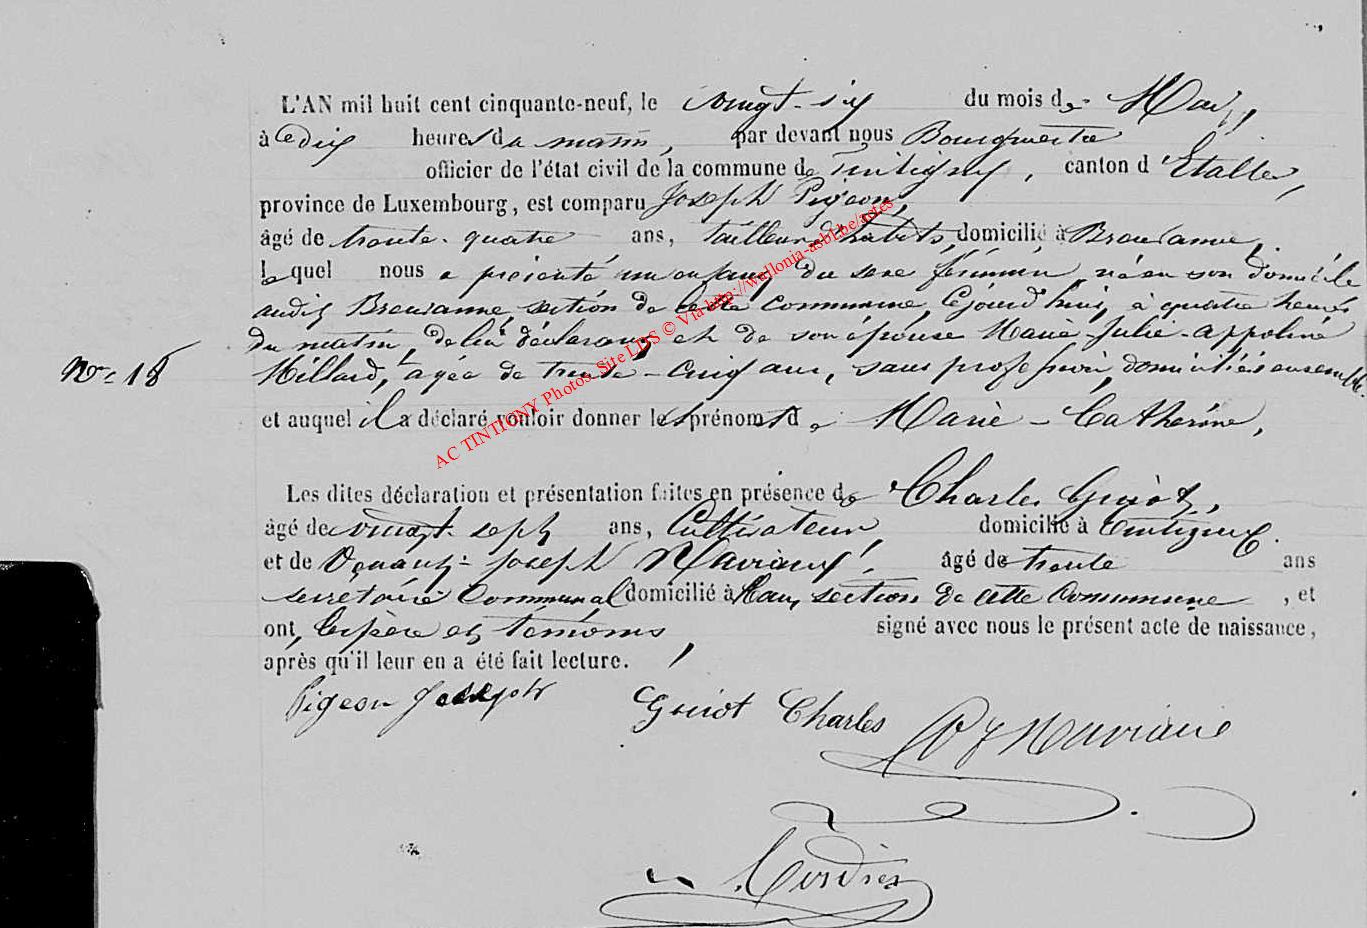 L'AN mil huit cent cinquante-neuf, le vingt-six du mois de Mai,
à le dix heures du matin, par devant nous Bourgmestre
officier de l'état civil de la commune de Tintigny, canton d'Etalle,
province de Luxembourg, est comparu Joseph Pigeon,
âgé de trente-quatre ans, tailleur d'habits, domicilié à Breuvanne,
lequel nous a présenté un enfant du sexe féminin, né en son domicile
audit Breuvanne, section de cette commune, cejourd'hui, à quatre heures
du matin, de lui déclarant et de son épouse Marie-Julie-Appoline
Millard, agée de trente-cinq ans, sans profession, domiciliés ensemble.
N° 18
et auquel il a déclaré vouloir donner les prénoms de Marie-Catherine,
Les dites déclaration et présentation faites en présence de Charles Guiot,
âgé de vingt-sept ans, Cultivateur, domicilié à Tintigny.
et de Joseph âgé de trente ans
secrétaire Communal domicilié à Han, section de cette Commune, et
ont, le père et témoins, signé avec nous le présent acte de naissance,
après qu'il leur en a été fait lecture.
Pigeon Joseph Guiot Charles
AC TINTIGNY Photos, Site LDS © Via http://wallonia-asbl.be/actes